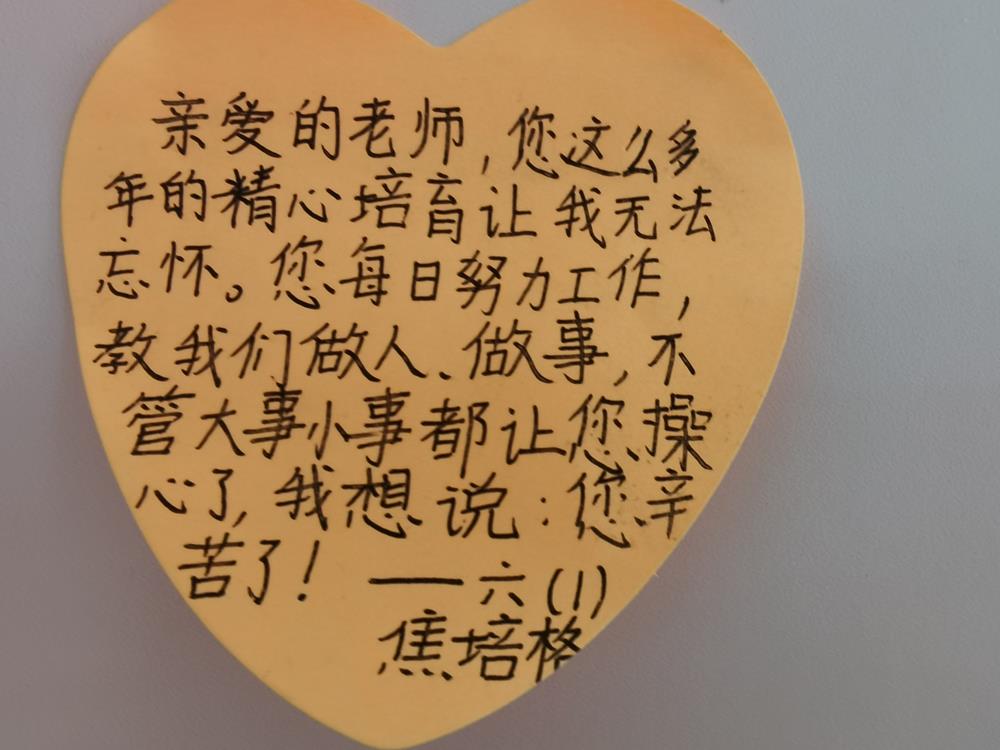 亲爱的老师,您这么多
年的精心培育让我无法
忘怀。您每日努力工作,
教我们做人、做事,不
管大事小事都让您操
心了,我想说:您辛
苦了!——六(1)
焦培格